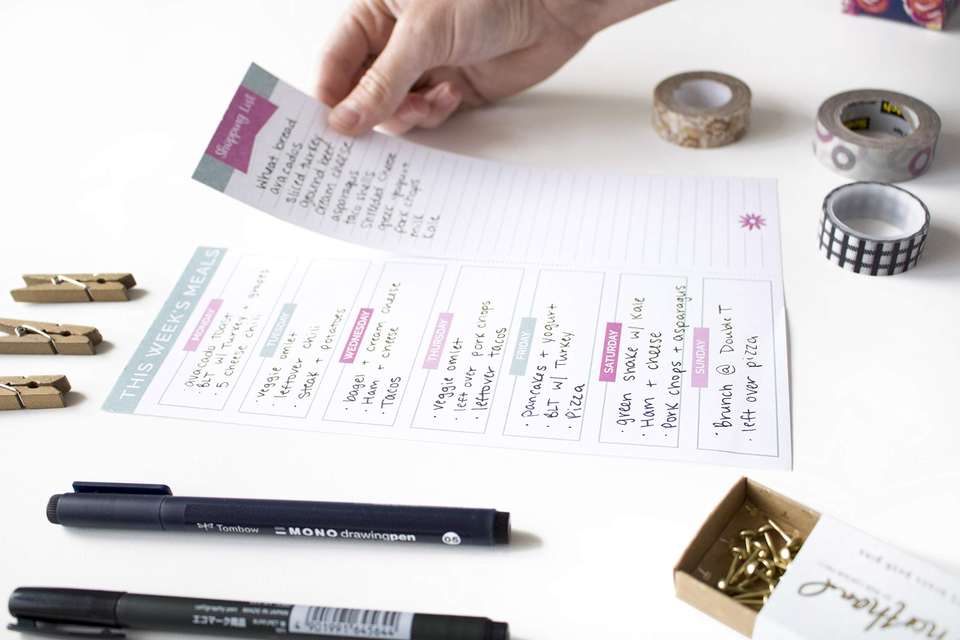 Shopping List
wheat bread
avacados
sliced turkey
ground beef
cream cheese
asparagus
taco shells
shredded cheese
greek yogurt
pork chops
milk
kale
THIS WEEK'S MEALS
MONDAY
avacado toast
· BLT w/ Turkey + grapes
· 5 cheese chili
TUESDAY
· veggie omlet
· leftover chili
· steak + potatoes
WEDNESDAY
· bagel + cream cheese
· Ham + cheese
· Tacos
THURSDAY
· veggie omlet
· left over pork chops
· leftover tacos
FRIDAY
· pancakes + yogurt
· BLT w/ Turkey
· Pizza
SATURDAY
· green shake w/ kale
· Ham + cheese
· pork chops + asparagus
SUNDAY
· Brunch @ Doubl T
· left over pizza
Tombow MONO drawingpen 05
エコマーク商品
4901991645644